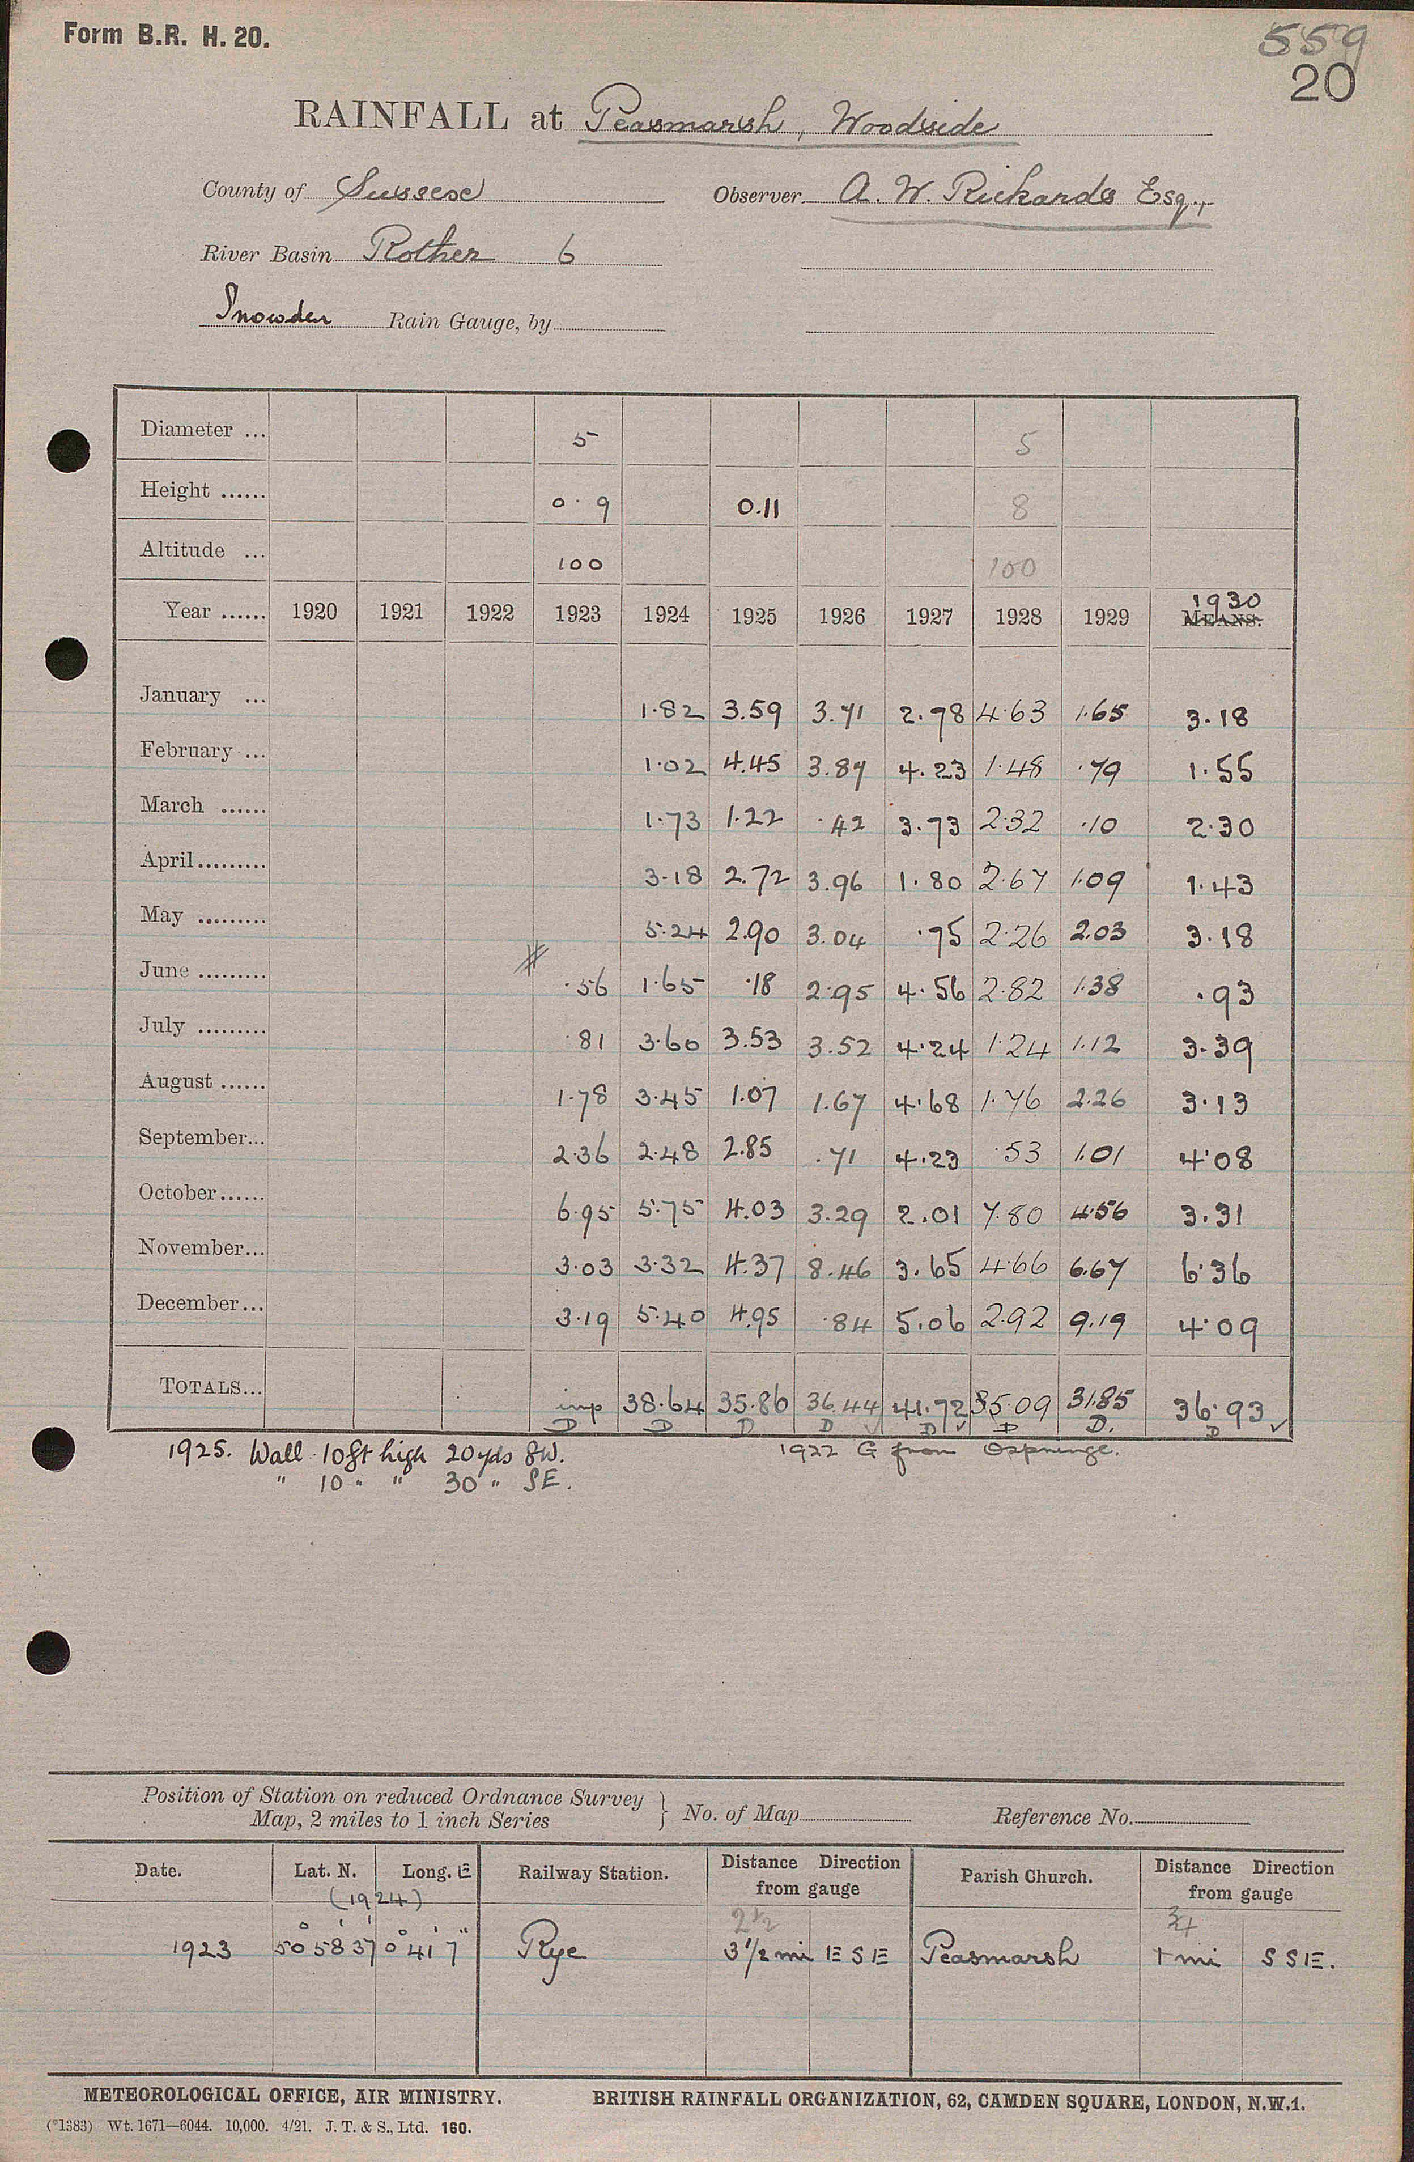 Form B.R. H. 20.
559
20
RAINFALL at Peasmarsh, Woodside
County of Sussex Observer A. W. Rickards Esq.,
River Basin Rother 6
Snowdon Rain Gauge, by
Diameter ... 5 5
Height ...... 0.9 0.11 8
Altitude ... 100 100
Year ...... 1920 1921 1922 1923 1924 1925 1926 1927 1928 1929 MEANS. 1930
January ... 1.82 3.59 3.71 2.78 4.63 1.65 3.18
February ... 1.02 4.45 3.87 4.23 1.48 .79 1.55
March ...... 1.73 1.22 .42 3.73 2.32 .10 2.30
April ......... 3.18 2.72 3.96 1.80 2.67 1.09 1.43
May ......... 5.24 2.90 3.04 .75 2.26 2.03 3.18
June ......... .56 1.65 .18 2.95 4.56 2.82 1.38 .93
July ......... .81 3.60 3.53 3.52 4.24 1.24 1.12 3.39
August ...... 1.78 3.45 1.07 1.67 4.68 1.76 2.26 3.13
September... 2.36 2.48 2.85 .71 4.23 .53 1.01 4.08
October ...... 6.95 5.75 4.03 3.29 2.01 7.80 4.56 3.31
November... 3.03 3.32 4.37 8.46 3.65 4.66 6.67 6.36
December... 3.19 5.40 4.95 .84 5.06 2.92 9.19 4.09
TOTALS... imp 38.64 35.86 36.44 41.72 35.09 31.85 36.93
D D D D D D D. D
1925. Wall 10ft high 20yds SW. 1922 G from Ospringe.
" 10 " " 30 " SE.
Position of Station on reduced Ordnance Survey
Map, 2 miles to 1 inch Series } No. of Map Reference No.
Date. Lat. N. Long. E Railway Station. Distance Direction from gauge Parish Church. Distance Direction from gauge
(1924)
2½ ¾
1923 50° 58' 37 0° 41' 7" Rye 3½ mi ESE Peasmarsh 1 mi SSE.
METEOROLOGICAL OFFICE, AIR MINISTRY. BRITISH RAINFALL ORGANIZATION, 62, CAMDEN SQUARE, LONDON, N.W.1.
(*1383) Wt. 1671—6044. 10,000. 4/21. J. T. & S., Ltd. 160.